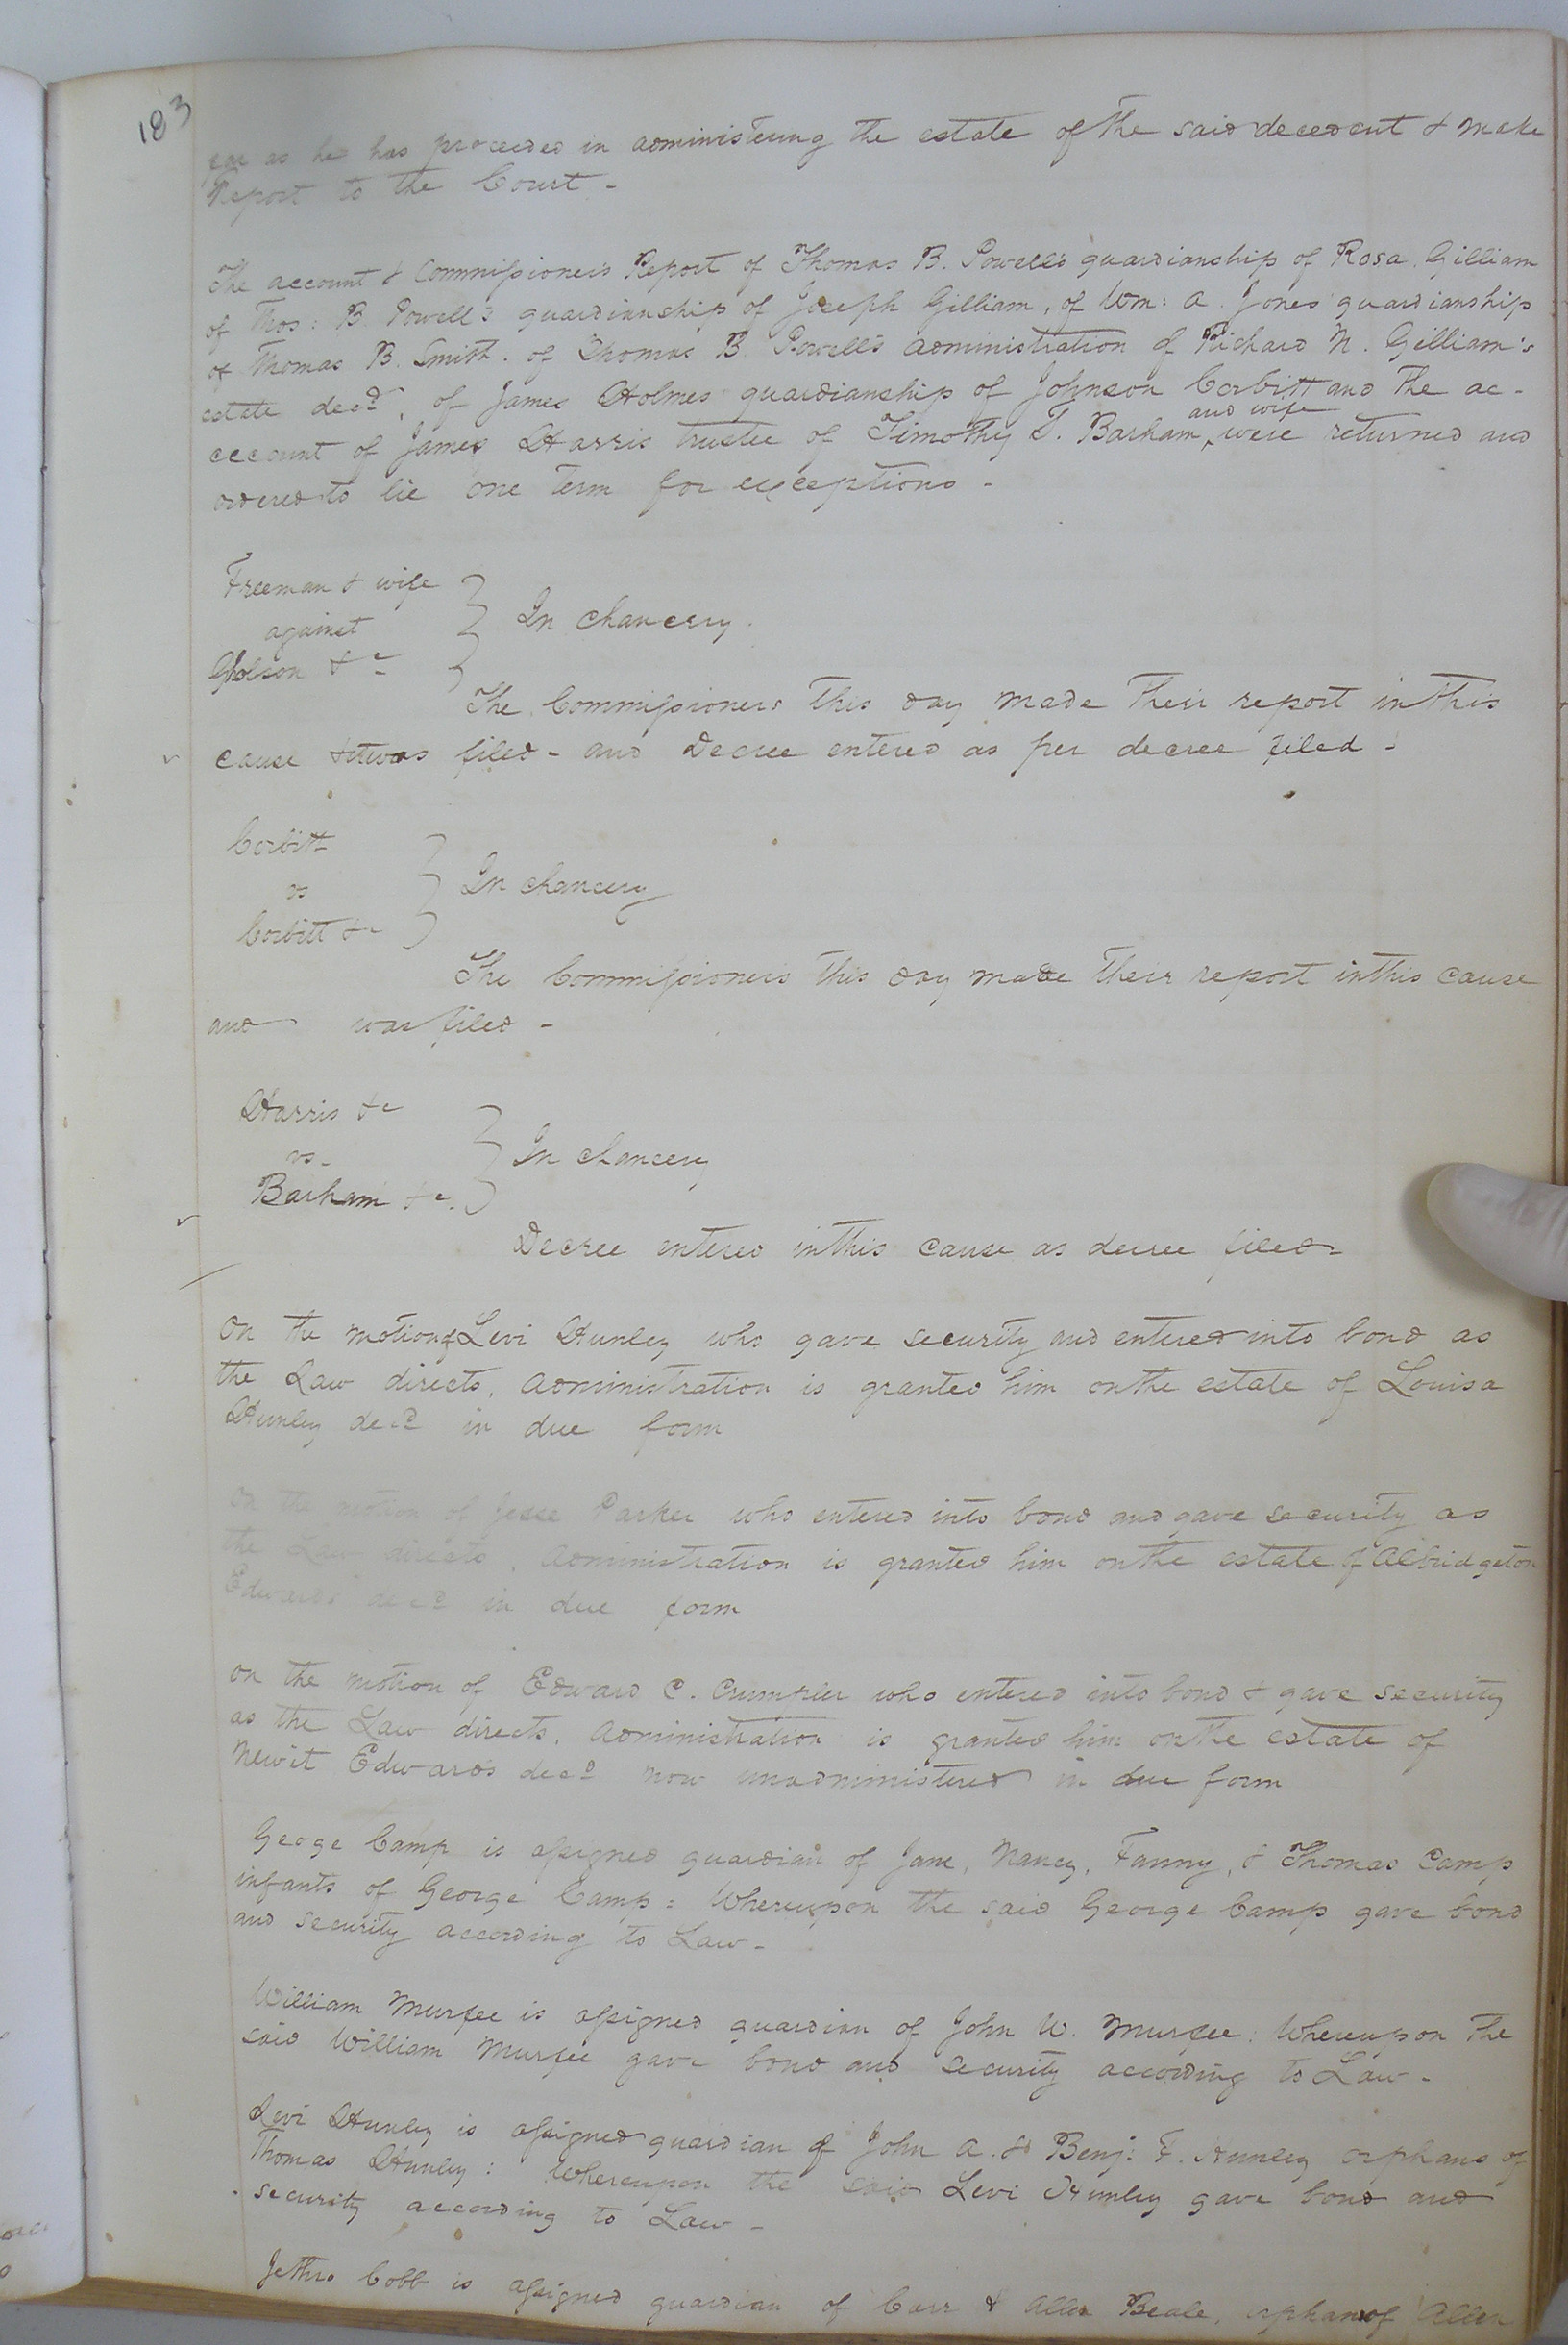 183
far as he has proceeded in administering the estate of the said decedent & make
Report to the Court -
The account & Commissioners Report of Thomas B. Powell's guardianship of Rosa Gilliam
of Thos: B. Powell's guardianship of Joseph Gilliam, of Wm: A. Jones guardianship
of Thomas B. Smith. of Thomas B Powell's administration of Richard N. Gilliam's
estate decd, of James Holmes guardianship of Johnson Corbitt and the ac-
ccount of James Harris trustee of Timothy T. Barham and wife were returned and
ordered to lie one term for exceptions -
Freeman & wife
against
Gholson &c
In Chancery.
The Commissioners this day made their report in this
cause & it was filed - and Decree entered as per decree filed -
Corbitt
vs
Corbitt &c
In chancery
The Commissioners this day made their report in this cause
and was filed -
Harris &c
vs.
Barham &c.
In chancery
Decree entered in this cause as decree filed -
On the motion of Levi Hunley who gave security and entered into bond as
the Law directs, administration is granted him on the estate of Louisa
Hunley decd in due form
On the motion of Jesse Parker who entered into bond and gave security as
the Law directs, administration is granted him on the estate of Albridgeton
Edwards decd in due form
On the motion of Edward C. Crumpler who entered into bond & gave security
as the Law directs, administration is granted him on the estate of
Newit Edwards decd now unadministered in due form
Geoge Camp is assigned guardian of Jane, Nancy, Fanny, & Thomas Camp
infants of George Camp: Whereupon the said George Camp gave bond
and security according to Law -
William Murfee is assigned guardian of John W. Murfee: Whereupon the
said William Murfee gave bond and security according to Law -
Levi Hunley is assigned guardian of John A. & Benj: F. Hunley orphans of
Thomas Hunley: Whereupon the said Levi Hunley gave bond and
security according to Law -
Jethro Cobb is assigned guardian of Carr & Allen Beale, orphans of Allen